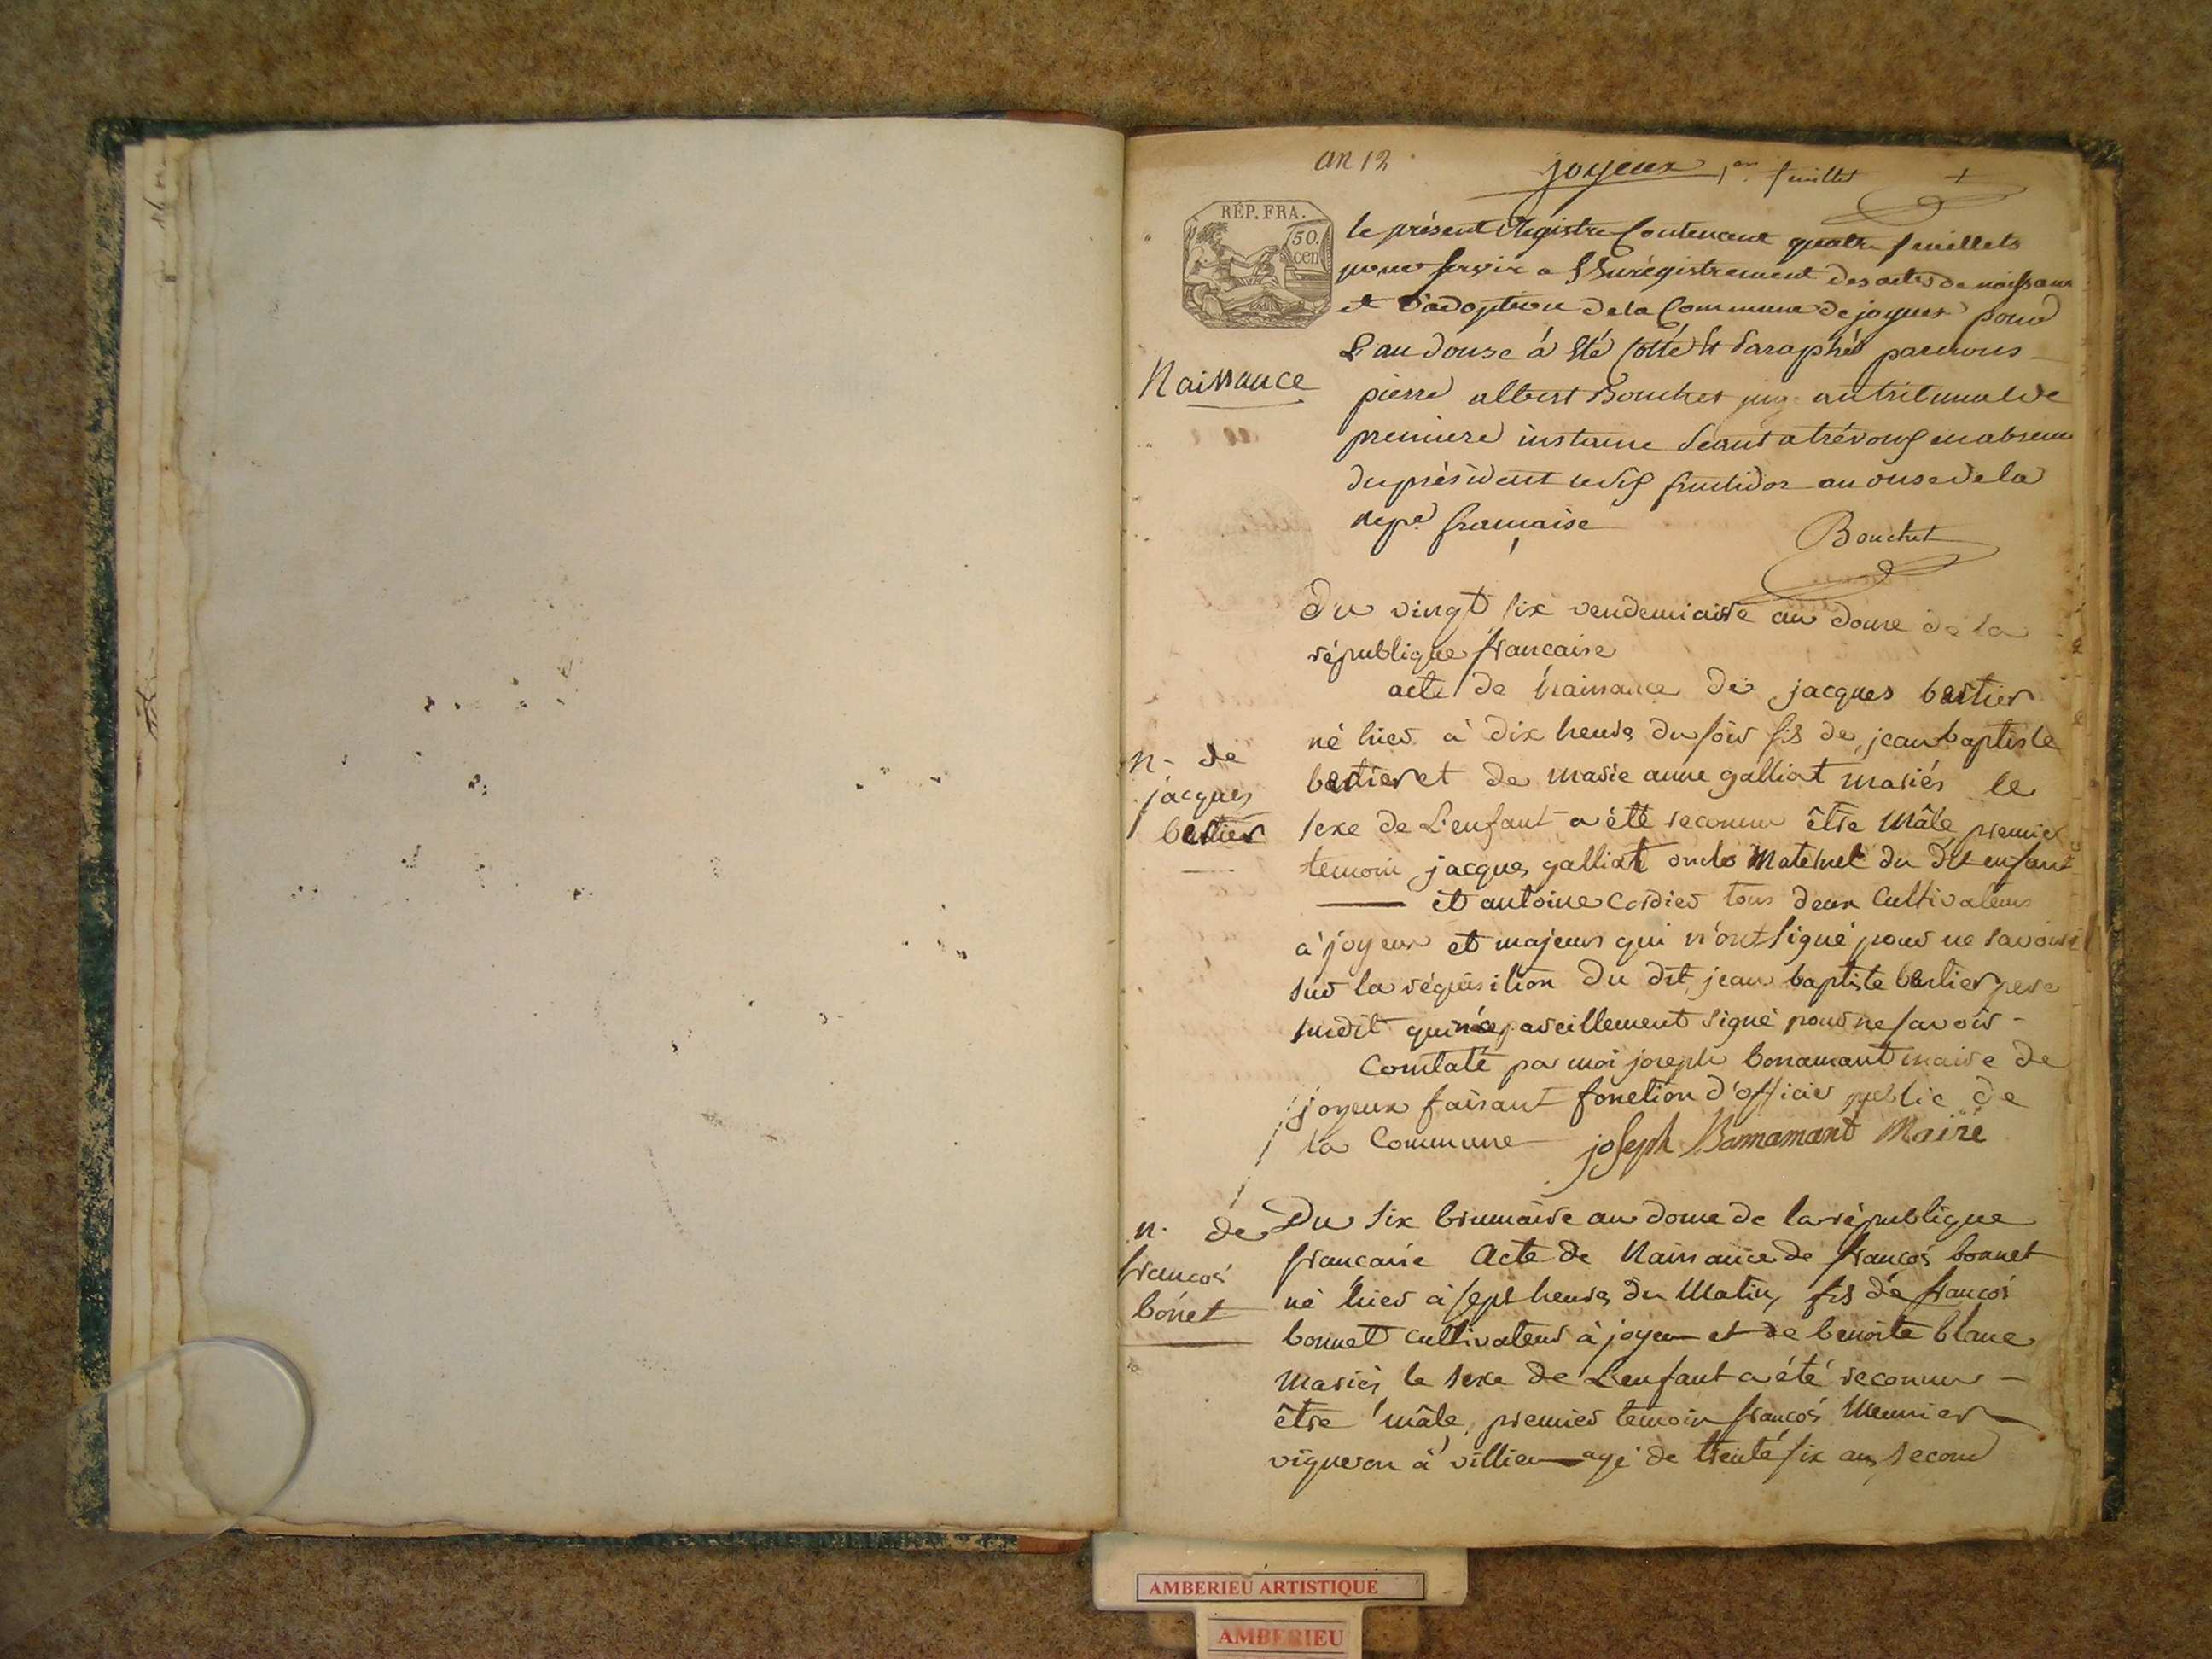 an 12
joyeux 1er feuillet
RÉP. FRA.
50. cen
le présent Registre Contenant quatre feuillets
pour servir a l'Enregistrement des actes de naissance
et d'adoption de la Commune de joyeux pour
L'an douse à été Cotté et Paraphés par nous
Naissance
pierre albert Bouchet juge au tribunal de
premiere instance séant a trévoux en absence
du président le dix fructidor an onse de la
repe. francaise
Bouchet
Du vingt six vendemiaire an douse de la
république francaise
acte de Naissance de jacques bertier
né hier à dix heures du soir fils de jean baptiste
bertier et de marie anne galliat mariés le
n. de
jacques
bertier
sexe de L'enfant a été reconnu être Mâle premier
temoin jacques galliat oncle Maternel du dit enfant
et antoine cordier tous deux Cultivateurs
à joyeux et majeurs qui n'ont signé pour ne savoir
sur la réquisition du dit jean baptiste bertier pere
sudit qui n'a pareillement signé pour ne savoir -
Constaté par moi joseph bonamant maire de
joyeux faisant fonction d'officier public de
la Commune joseph Bannamant Maire
n. de
francois
bonet
Du six brumaire an douse de la république
francaise Acte de Naissance de francois bonnet
né hier à sept heures du Matin, fils de francois
bonnet cultivateur à joyeux et de benoite blanc
Mariés le sexe de L'enfant a été reconnu -
être mâle, premier temoin francois Meunier
vigneron à villieu agé de trente six ans, second
AMBERIEU ARTISTIQUE
AMBERIEU